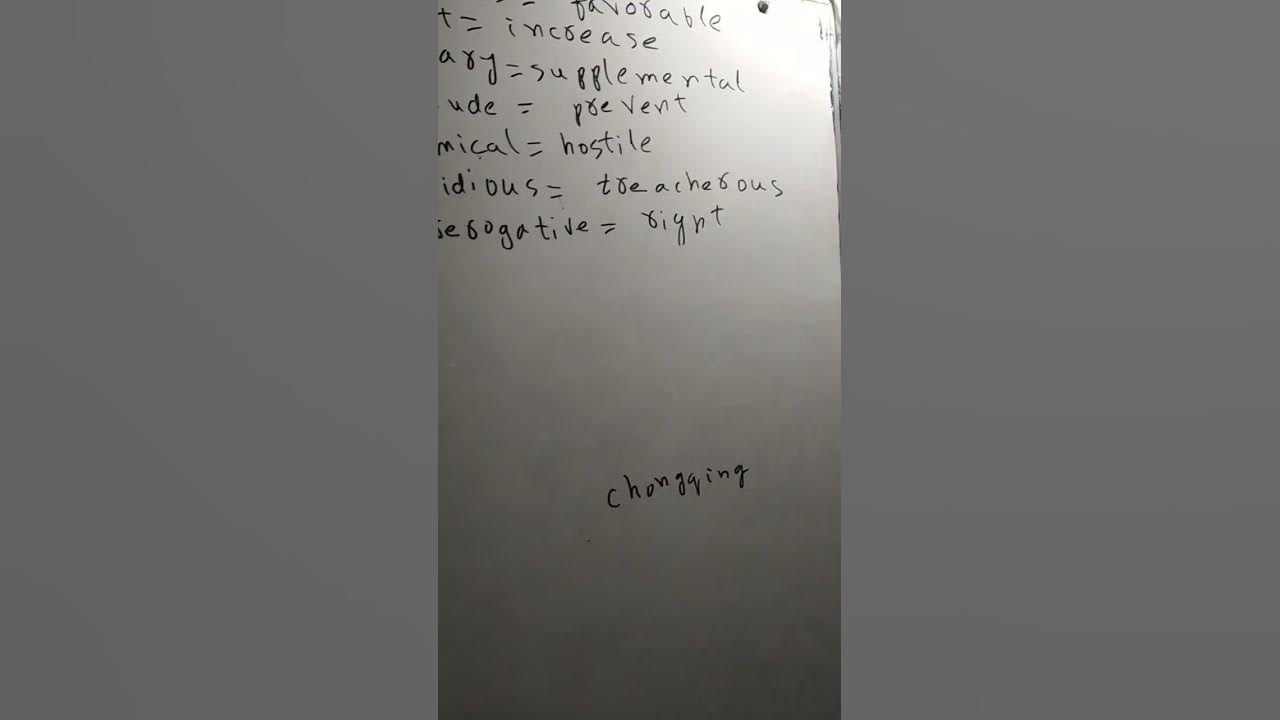 = favorable
t = increase
ary = supplemental
ude = prevent
mical = hostile
idious = treacherous
rerogative = right
chongqing